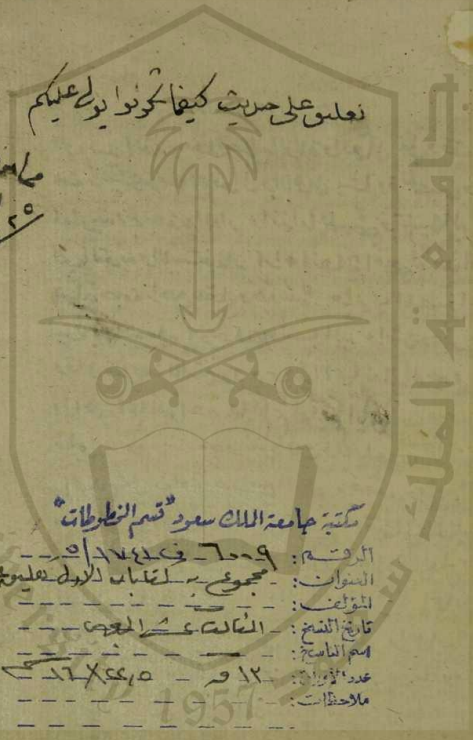 تعليق على حديث كيفما تكونوا يولى عليكم
٢٥
جامعة الملك سعود
مكتبة جامعة الملك سعود "قسم المخطوطات"
الرقم: ٦٠٠٩ ف ١٧٤١/٥
العنوان: مجموع به كتابان الأول تعليق
المؤلف:
تاريخ النسخ: الثالث عشر الهجري
اسم الناسخ:
عدد الأوراق: ١٢ ق ٢٢,٥ × ١٦ سم
ملاحظات:
1957